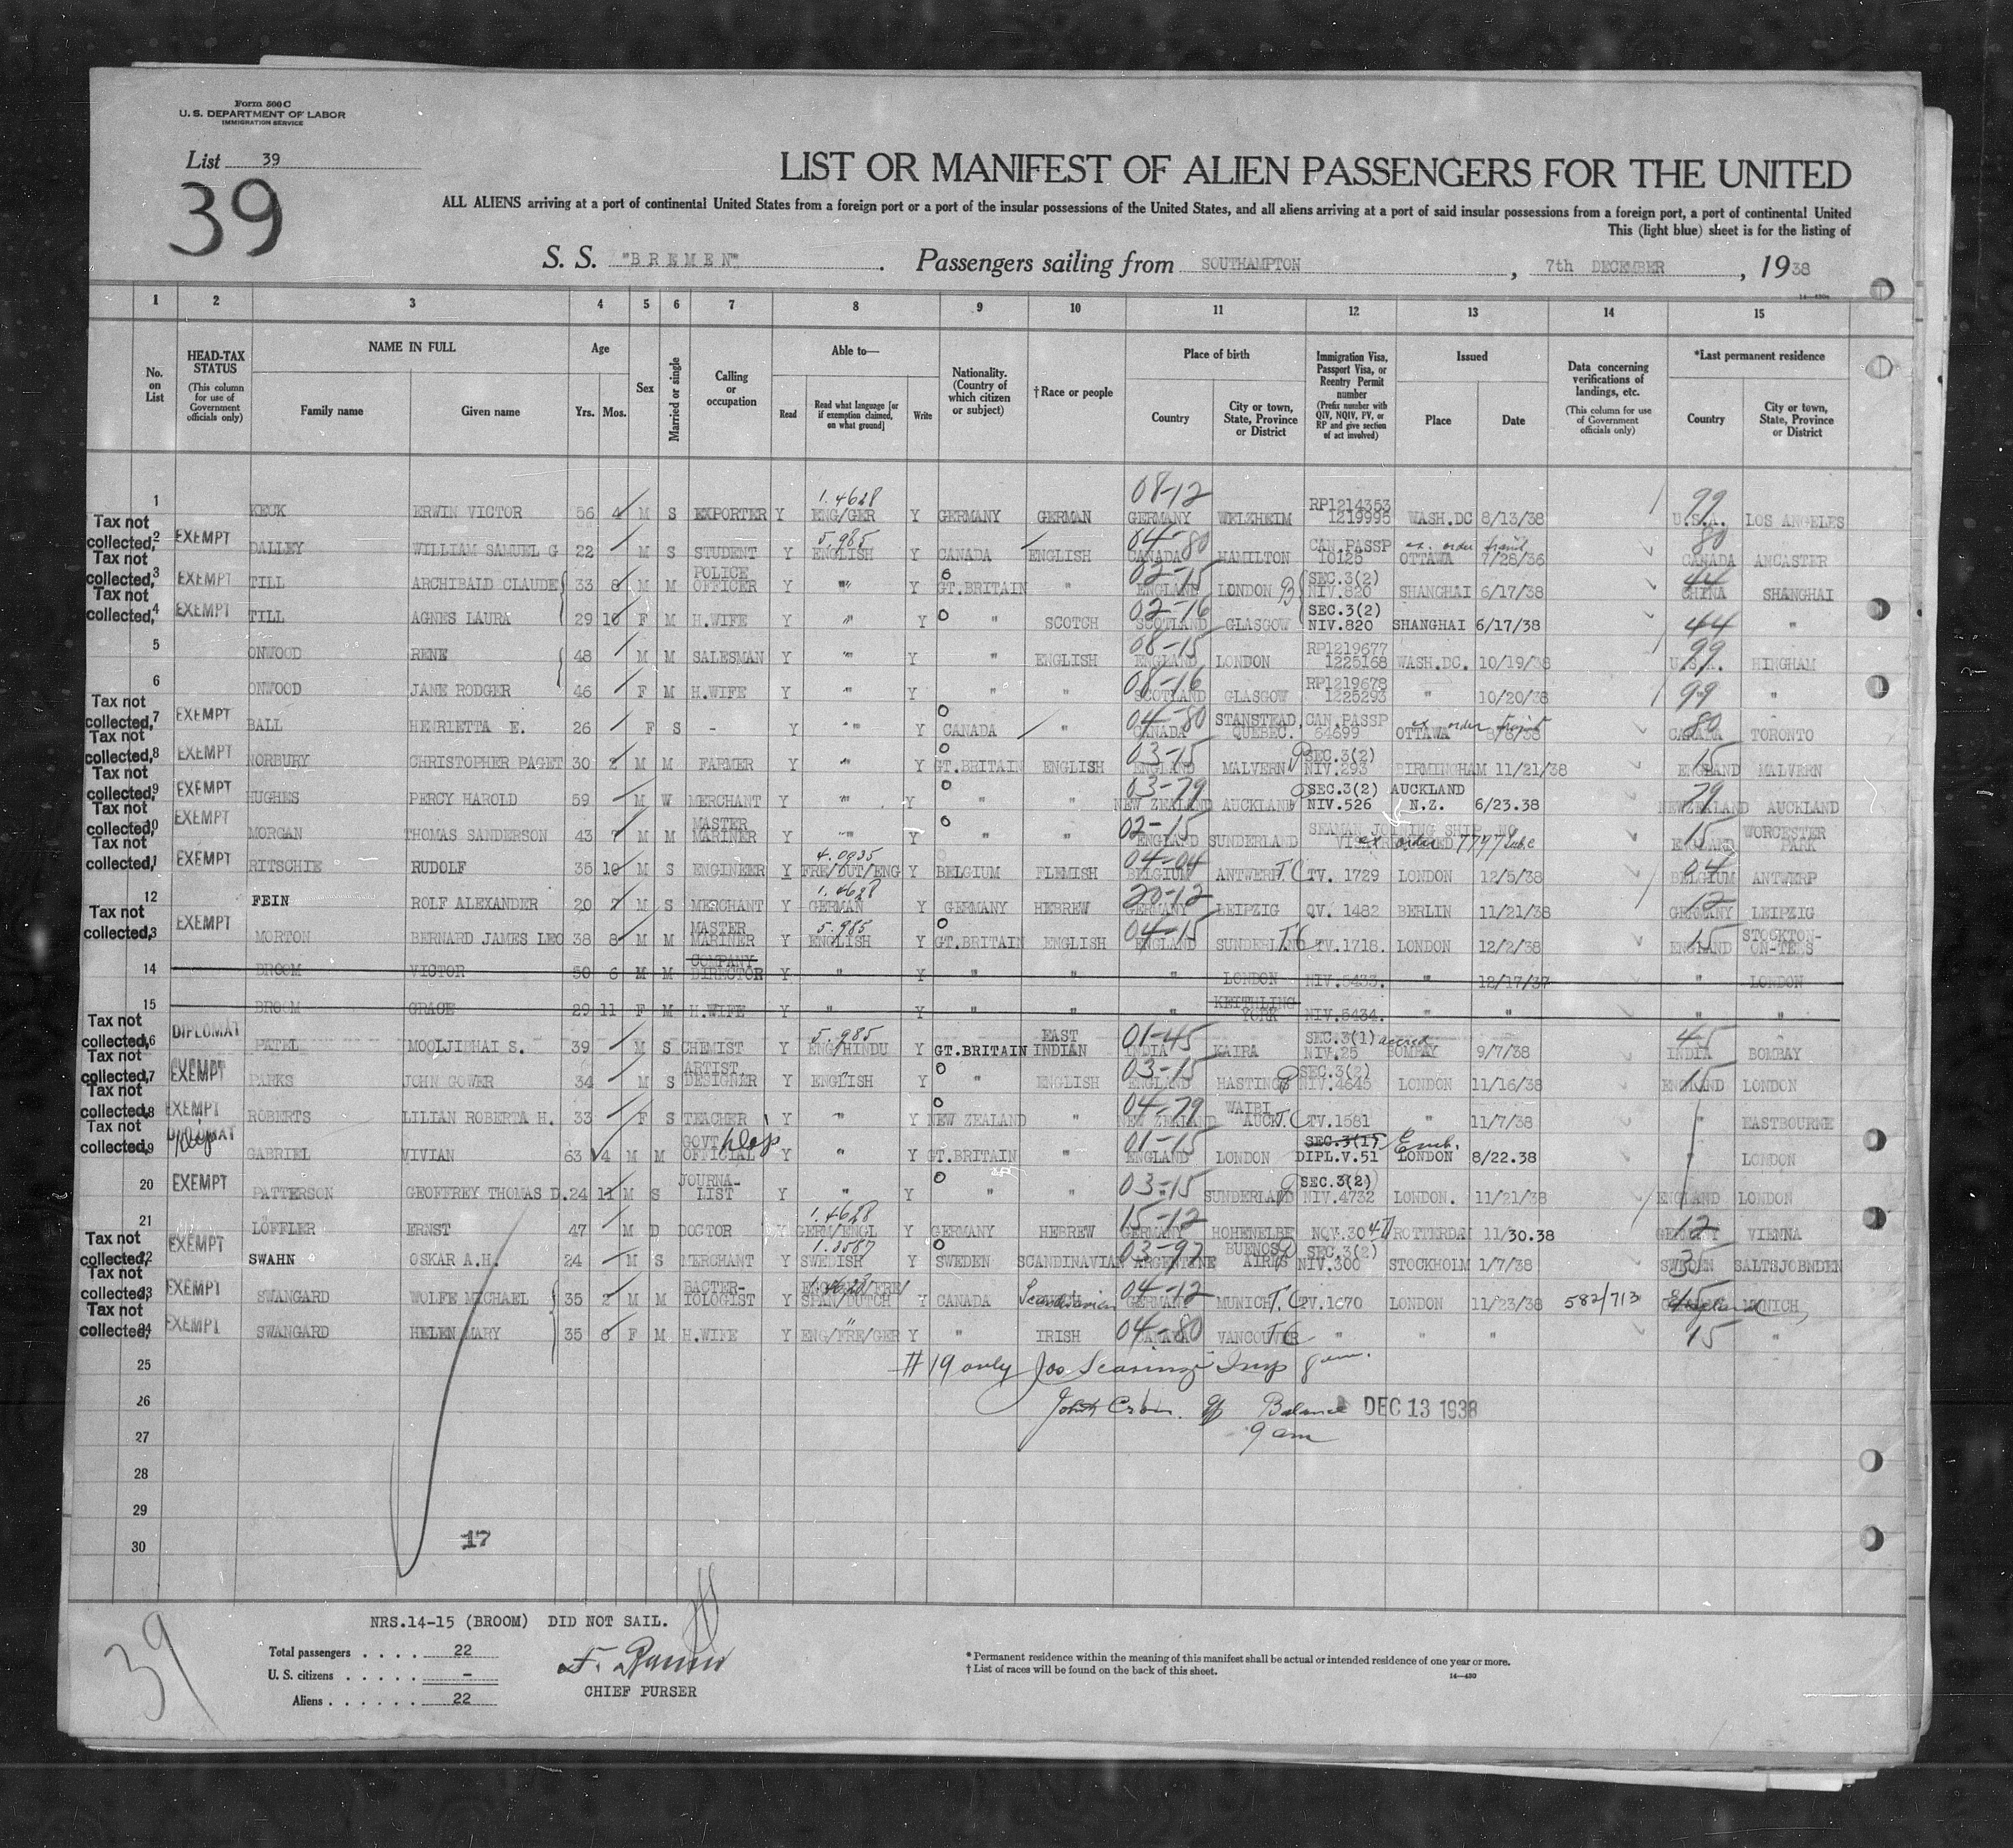 Form 500 C
U. S. DEPARTMENT OF LABOR
IMMIGRATION SERVICE
List 39
39
LIST OR MANIFEST OF ALIEN PASSENGERS FOR THE UNITED
ALL ALIENS arriving at a port of continental United States from a foreign port or a port of the insular possessions of the United States, and all aliens arriving at a port of said insular possessions from a foreign port, a port of continental United
This (light blue) sheet is for the listing of
S. S. "BREMEN". Passengers sailing from SOUTHAMPTON, 7th DECEMBER, 1938
1 2 3 4 5 6 7 8 9 10 11 12 13 14 15
No. on List
HEAD-TAX STATUS (This column for use of Government officials only)
NAME IN FULL Family name Given name
Age Yrs. Mos.
Sex
Married or single
Calling or occupation
Able to— Read Read what language [or if exemption claimed, on what ground] Write
Nationality. (Country of which citizen or subject)
†Race or people
Place of birth Country City or town, State, Province or District
Immigration Visa, Passport Visa, or Reentry Permit number (Prefix number with QIV, NQIV, PV, or RP and give section of act involved)
Issued Place Date
Data concerning verifications of landings, etc. (This column for use of Government officials only)
*Last permanent residence Country City or town, State, Province or District
1 KECK ERWIN VICTOR 56 4 M S EXPORTER Y 1.4628 ENG/GER Y GERMANY GERMAN 08-12 GERMANY WELZHEIM RP1214353 1219995 WASH.DC 8/13/38 99 U.S.A. LOS ANGELES
Tax not collected, 2 EXEMPT DALLEY WILLIAM SAMUEL G 22 M S STUDENT Y 5.985 ENGLISH Y CANADA ENGLISH 04-80 CANADA HAMILTON CAN PASSP 10125 OTTAWA 7/28/36 80 CANADA ANCASTER
Tax not collected, 3 EXEMPT TILL ARCHIBALD CLAUDE 33 8 M M POLICE OFFICER Y " Y GT.BRITAIN " 02-15 ENGLAND LONDON SEC.3(2) NIV.820 SHANGHAI 6/17/38 44 CHINA SHANGHAI
Tax not collected, 4 EXEMPT TILL AGNES LAURA 29 10 F M H.WIFE Y " Y " SCOTCH 02-16 SCOTLAND GLASGOW SEC.3(2) NIV.820 SHANGHAI 6/17/38 44 "
5 ONWOOD RENE 48 M M SALESMAN Y " Y " ENGLISH 08-15 ENGLAND LONDON RP1219677 1225168 WASH.DC. 10/19/38 99 U.S.A. HINGHAM
6 ONWOOD JANE RODGER 46 F M H.WIFE Y " Y " " 08-16 SCOTLAND GLASGOW RP1219678 1225293 " 10/20/38 99 "
Tax not collected, 7 EXEMPT BALL HENRIETTA E. 26 F S - Y " Y CANADA " 04-80 CANADA STANSTEAD, QUEBEC. CAN.PASSP 64699 OTTAWA 80 CANADA TORONTO
Tax not collected, 8 EXEMPT NORBURY CHRISTOPHER PAGET 30 2 M M FARMER Y " Y GT.BRITAIN ENGLISH 03-15 ENGLAND MALVERN SEC.3(2) NIV.293 BIRMINGHAM 11/21/38 15 ENGLAND MALVERN
Tax not collected, 9 EXEMPT HUGHES PERCY HAROLD 59 M W MERCHANT Y " Y " " 03-79 NEW ZEALAND AUCKLAND SEC.3(2) NIV.526 AUCKLAND N.Z. 6/23.38 79 NEW ZEALAND AUCKLAND
Tax not collected, 10 EXEMPT MORGAN THOMAS SANDERSON 43 7 M M MASTER MARINER Y " Y " " 02-15 ENGLAND SUNDERLAND SEAMAN JOINING SHIP NO 15 ENGLAND WORCESTER PARK
Tax not collected, 11 EXEMPT RITSCHIE RUDOLF 35 10 M S ENGINEER Y 4.0935 FRE/DUT/ENG Y BELGIUM FLEMISH 04-04 BELGIUM ANTWERP TC TV. 1729 LONDON 12/5/38 04 BELGIUM ANTWERP
12 FEIN ROLF ALEXANDER 20 7 M S MERCHANT Y 1.4628 GERMAN Y GERMANY HEBREW 20-12 GERMANY LEIPZIG QV. 1482 BERLIN 11/21/38 12 GERMANY LEIPZIG
Tax not collected, 13 EXEMPT MORTON BERNARD JAMES LEO 38 8 M M MASTER MARINER Y 5.985 ENGLISH Y GT.BRITAIN ENGLISH 04-15 ENGLAND SUNDERLAND TC TV.1718. LONDON 12/2/38 15 ENGLAND STOCKTON-ON-TEES
14 BROOM VICTOR 50 6 M M COMPANY DIRECTOR Y " Y " " " LONDON NIV.5433. " 12/17/37 " LONDON
15 BROOM GRACE 29 11 F M H.WIFE Y " Y " " " YORK NIV.5434. " " " "
Tax not collected, 16 DIPLOMAT PATEL MOOLJIBHAI S. 39 M S CHEMIST Y 5.985 ENG/HINDU Y GT.BRITAIN EAST INDIAN 01-45 INDIA KAIRA SEC.3(1) NIV.25 BOMBAY 9/7/38 45 INDIA BOMBAY
Tax not collected, 17 EXEMPT PARKS JOHN GOWER 34 M S ARTIST DESIGNER Y ENGLISH Y " ENGLISH 03-15 ENGLAND HASTINGS SEC.3(2) NIV.4645 LONDON 11/16/38 15 ENGLAND LONDON
Tax not collected, 18 EXEMPT ROBERTS LILIAN ROBERTA H. 33 F S TEACHER Y " Y NEW ZEALAND " 04-79 NEW ZEALAND WAIRI AUCK. TC TV.1581 " 11/7/38 " EASTBOURNE
Tax not collected, 19 DIPLOMAT GABRIEL VIVIAN 63 4 M M GOVT OFFICIAL Y " Y GT.BRITAIN " 01-15 ENGLAND LONDON SEC.3(1) DIPL.V.51 Emb. LONDON 8/22.38 " LONDON
20 EXEMPT PATTERSON GEOFFREY THOMAS D. 24 11 M S JOURNA-LIST Y " Y " " 03-15 SUNDERLAND SEC.3(2) NIV.4732 LONDON. 11/21/38 ENGLAND LONDON
21 LÖFFLER ERNST 47 M D DOCTOR Y 1.4628 GERM/ENGL Y GERMANY HEBREW 15-12 GERMANY HOHENELBE NQV.3047 ROTTERDAM 11/30.38 12 GERMANY VIENNA
Tax not collected, 22 EXEMPT SWAHN OSKAR A.H. 24 M S MERCHANT Y 1.3587 SWEDISH Y SWEDEN SCANDINAVIAN 03-97 ARGENTINE BUENOS AIRES SEC.3(2) NIV.300 STOCKHOLM 1/7/38 35 SWEDEN SALTSJOBNDEN
Tax not collected, 23 EXEMPT SWANGARD WOLFE MICHAEL 35 2 M M BACTER-IOLOGIST Y SPAN/DUTCH Y CANADA Scandinavian 04-12 GERMANY MUNICH TC TV.1670 LONDON 11/23/38 582/713 15 England MUNICH
Tax not collected, 24 EXEMPT SWANGARD HELEN MARY 35 6 F M H.WIFE Y ENG/FRE/GER Y " IRISH 04-80 CANADA VANCOUVER TC " " " 15 "
25 #19 only
26 Balance DEC 13 1938
27 9 am
28
29
30 17
NRS.14-15 (BROOM) DID NOT SAIL.
Total passengers . . . . 22
U. S. citizens . . . . . -
Aliens . . . . . . 22
CHIEF PURSER
39
* Permanent residence within the meaning of this manifest shall be actual or intended residence of one year or more.
† List of races will be found on the back of this sheet.
14—430